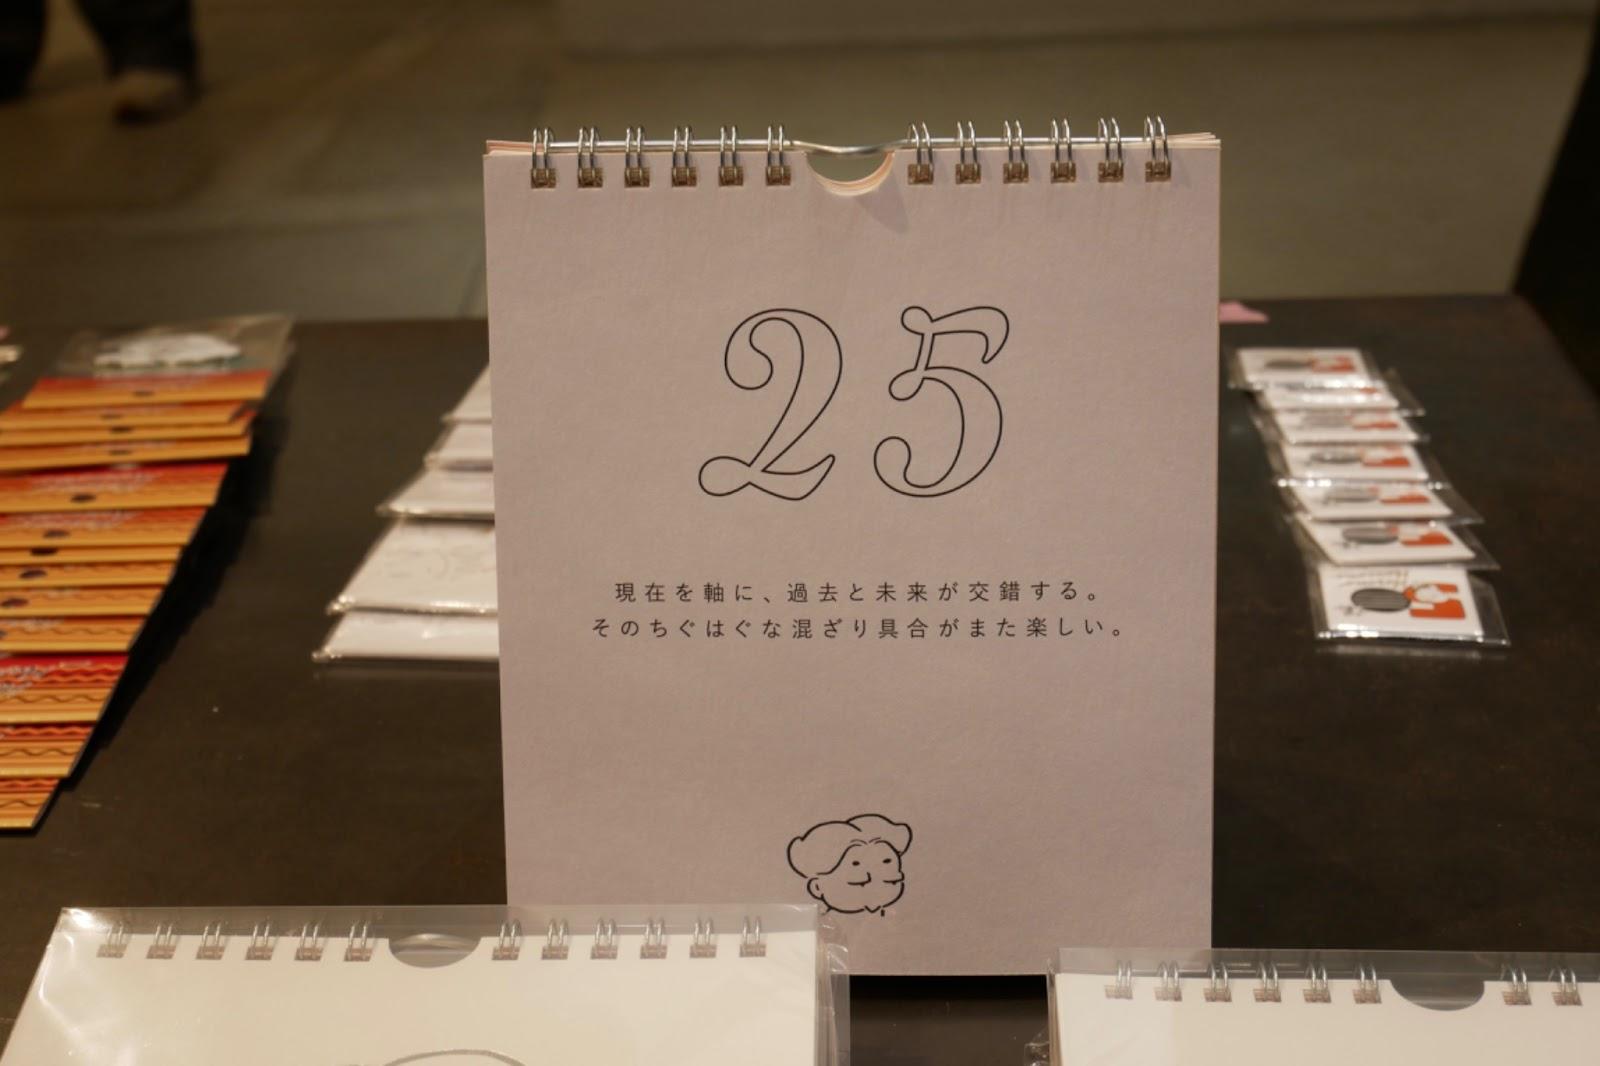 25
現在を軸に、過去と未来が交錯する。
そのちぐはぐな混ざり具合がまた楽しい。